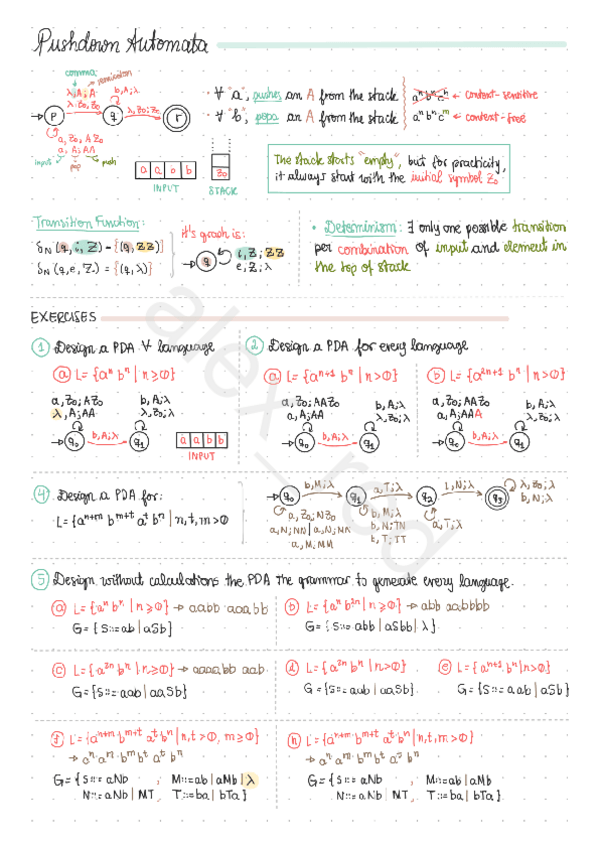 Pushdown Automata
comma permutation
λ,A;A
λ,Z₀;Z₀
b,A;λ
λ,Z₀;Z₀
p q r
a,Z₀;AZ₀
a,A;AA
input pop push
a a b b
INPUT
Z₀
STACK
• ∀ "a", pushes an A from the stack
• ∀ "b", pops an A from the stack
aⁿbⁿcⁿ ← context-sensitive
aⁿbⁿcᵐ ← context-free
The stack starts "empty", but for practicity,
it always start with the initial symbol Z₀
Transition Function:
δN (q, i, Z) = {(q, ZZ)}
δN (q, e, Z) = {(q, λ)}
It's graph is:
q
i,Z;ZZ
e,Z;λ
• Determinism: ∃ only one possible transition
per combination of input and element in
the top of stack
EXERCISES
1 Design a PDA ∀ language
a L = {aⁿ bⁿ | n ≥ 0}
a,Z₀;AZ₀
λ,A;AA
b,A;λ
λ,Z₀;λ
q₀ b,A;λ q₁
a a b b
INPUT
2 Design a PDA for every language
a L = {aⁿ⁺¹ bⁿ | n>0}
a,Z₀;AAZ₀
a,A;AA
b,A;λ
λ,Z₀;λ
q₀ b,A;λ q₁
b L = {a²ⁿ⁺¹ bⁿ | n>0}
a,Z₀;AAZ₀
a,A;AAA
b,A;λ
λ,Z₀;λ
q₀ b,A;λ q₁
4 Design a PDA for:
L = {aⁿ⁺ᵐ bᵐ⁺ᵗ aᵗ bⁿ | n,t,m>0
b,M;λ a,T;λ b,N;λ λ,Z₀;λ
b,N;λ
q₀ q₁ q₂ q₃
a,Z₀;NZ₀
a,N;NN | a,N;MN
a,M;MM
b,M;λ
b,N;TN
t,T;TT
a,T;λ
5 Design without calculations the PDA the grammar to generate every language.
a L = {aⁿ bⁿ | n ≥ 0} → aabb aaabb
G = {S::= ab | aSb}
b L = {aⁿ b²ⁿ | n ≥ 0} → abb aabbbb
G = {S::= abb | aSbb | λ}
c L = {a²ⁿ bⁿ | n ≥ 0} → aaaabb aab
G = {S::= aab | aaSb}
d L = {a²ⁿ bⁿ | n>0}
G = {S::= aab | aaSb}
e L = {aⁿ⁺¹ bⁿ | n>0}
G = {S::= aab | aSb}
f L = {aⁿ⁺ᵐ bᵐ⁺ᵗ aᵗ bⁿ | n,t > 0, m ≥ 0}
→ aⁿ aᵐ · bᵐ bᵗ aᵗ bⁿ
G = { S::= aNb , M::= ab | aMb | λ
N::= aNb | MT , T::= ba | bTa }
h L = {aⁿ⁺ᵐ bᵐ⁺ᵗ aᵗ bⁿ | n,t,m>0}
→ aⁿ aᵐ · bᵐ bᵗ aᵗ bⁿ
G = { S::= aNb , M::= ab | aMb
N::= aNb | MT , T::= ba | bTa }
alex_red